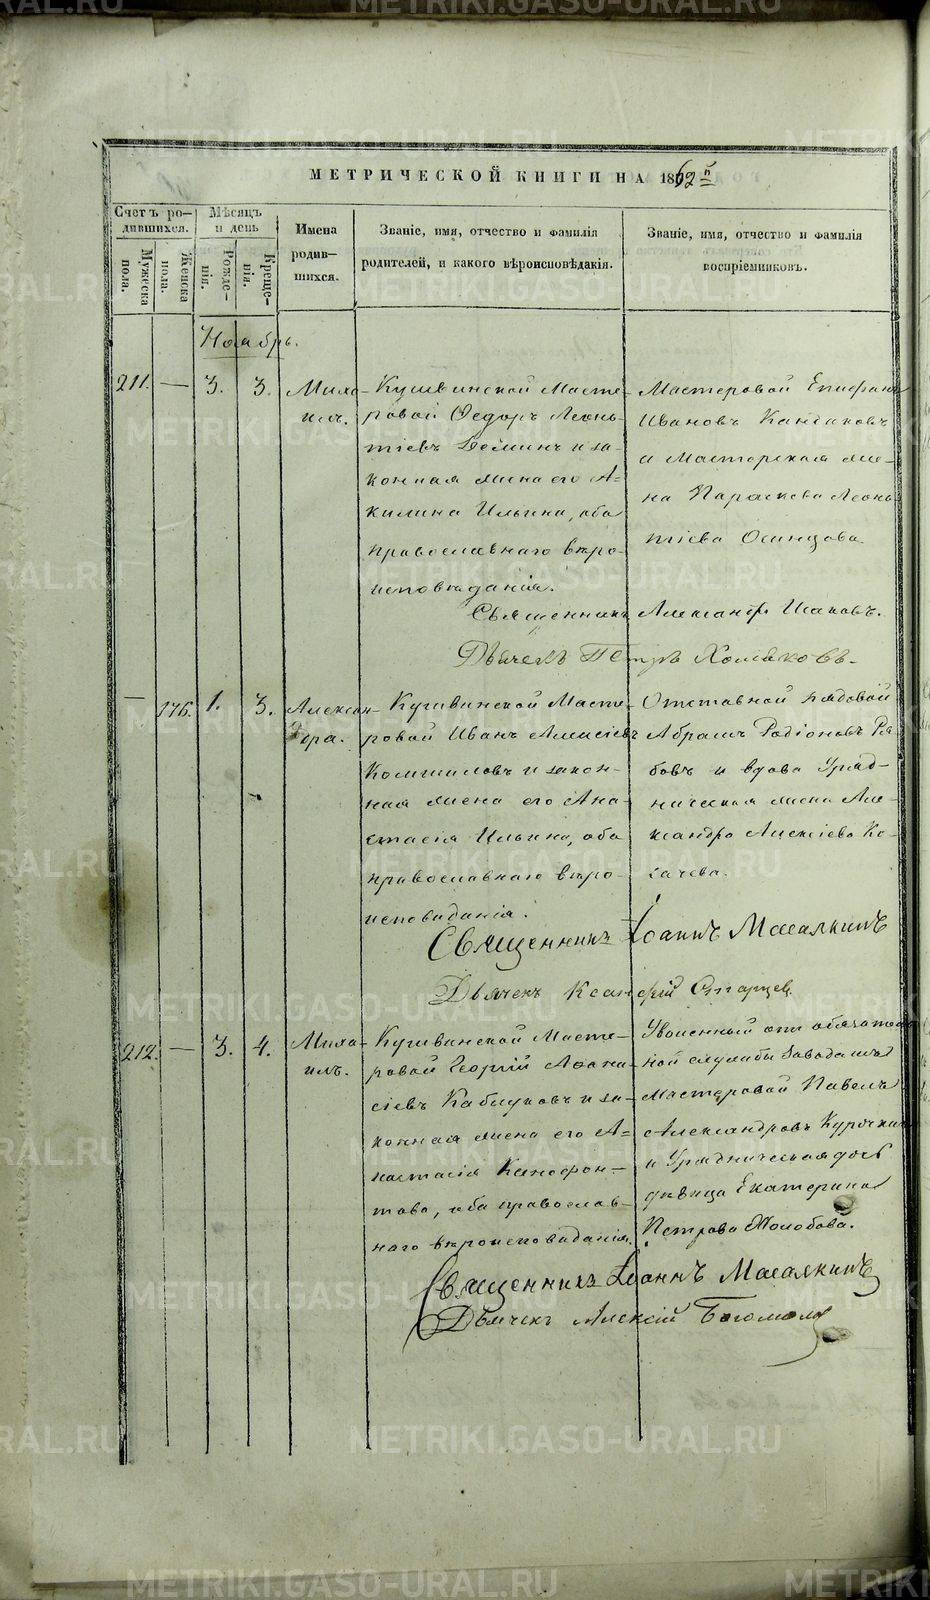 МЕТРИЧЕСКОЙ КНИГИ НА 1862й
Счетъ ро-
дившихся.
Мужеска
пола.
Женска
пола.
Мѣсяцъ
и день
Рожде-
нія.
Креще-
нія.
Имена
родив-
шихся.
Званіе, имя, отчество и фамилія
родителей, и какого вѣроисповѣданія.
Званіе, имя, отчество и фамилія
воспріемниковъ.
Ноябрь.
211. — 3. 3.
Миха-
илъ.
Кушвинской Масте-
ровой Ѳедоръ Леонь-
тіевъ Деминъ и за-
конная жена его А-
килина Ильина, оба
православнаго вѣро-
исповѣданія.
Мастеровой Епифанъ
Ивановъ Кандаковъ
и Мастерская же-
на Параскева Леонь-
тіева Осинцова.
Священникъ Александръ
Дьячекъ Петръ Хомяковъ.
— 176. 1. 3.
Алексан-
дра.
Кушвинской Масте-
ровой Иванъ Алексіевъ
и закон-
ная жена его Ана-
стасія Ильина, оба
православнаго вѣро-
исповиданія.
Отставной рядовой
Абрамъ Родіоновъ Ря-
бовъ и вдова Уряд-
ническая жена Але-
ксандра Алексіева Ко-
качева.
Священникъ Іоаннъ
Дьячекъ Старцев.
212. — 3. 4.
Миха-
илъ.
Кушвинской Масте-
ровой Георгій Аѳана-
сіевъ Каблуковъ и за-
конная жена его А-
настасія Ксенофон-
това, оба православ-
наго вѣроисповиданія.
Уволенный отъ обязател
ной службы Заводамъ
мастеровой Павелъ
Александровъ Курочкин
и Урядническая дочь
дѣвица Екатерина
Петрова Жолобова.
Священникъ Іоаннъ
Дьячекъ Алексій Богомолов
METRIKI.GASO-URAL.RU